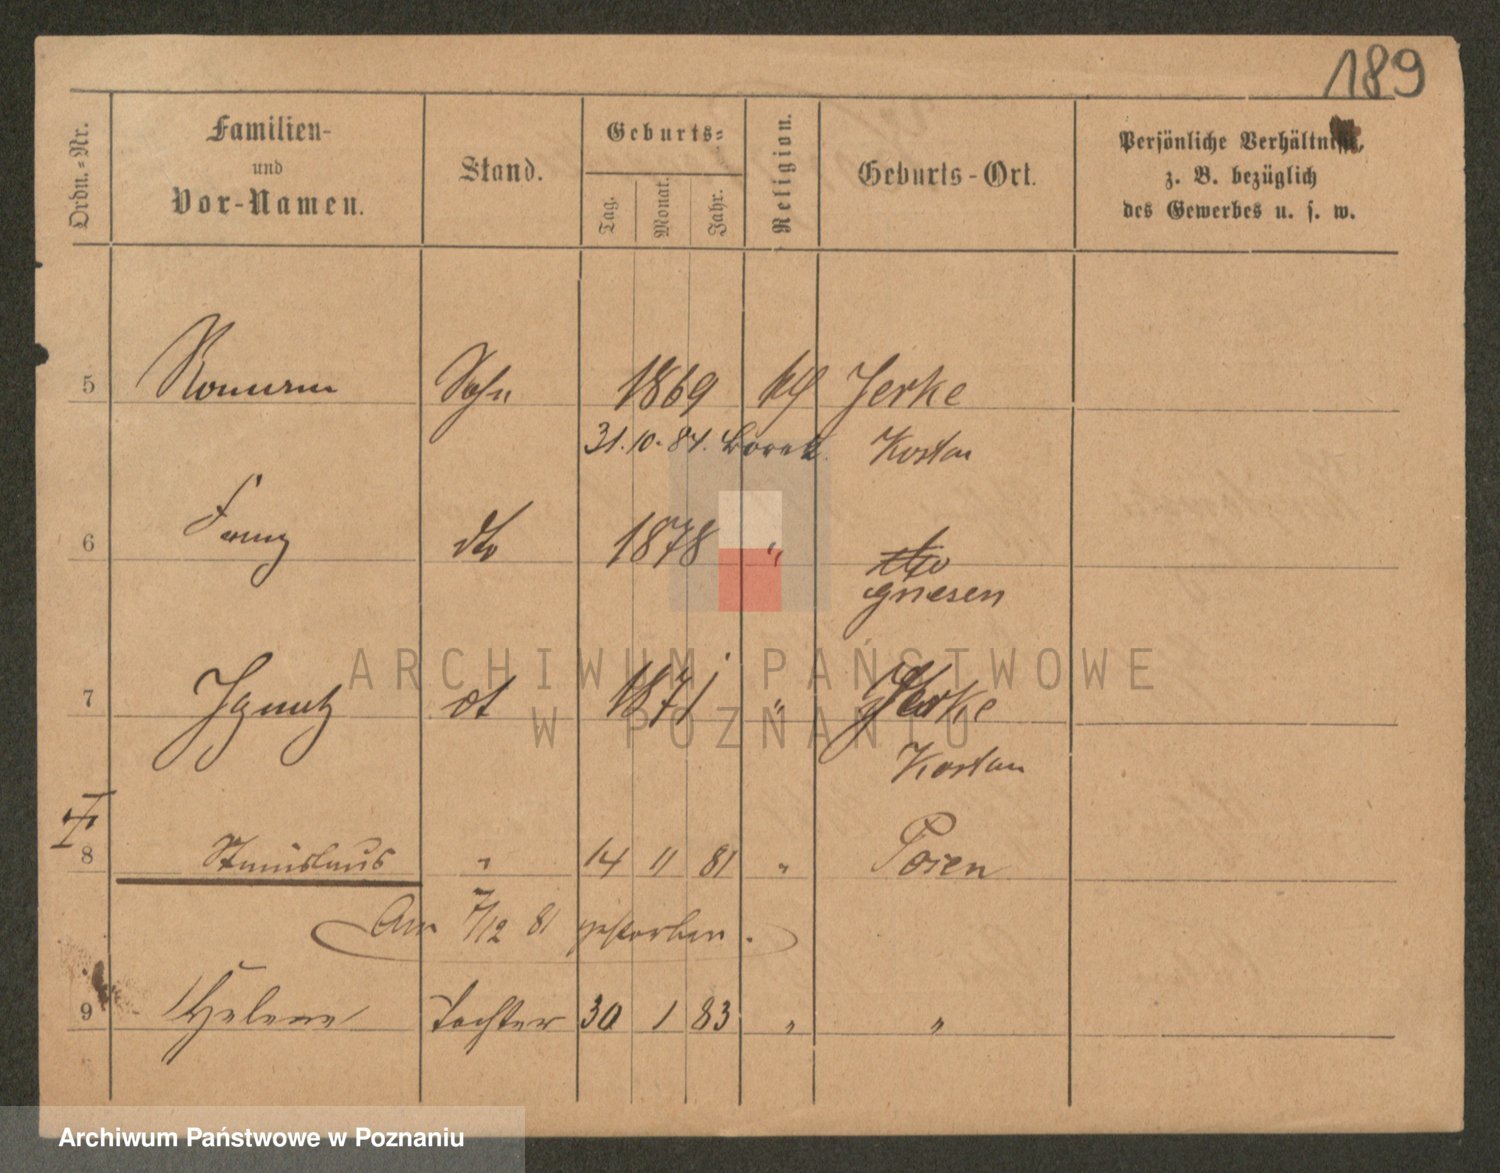 189
Ordn.-Nr.
Familien-
und
Vor-Namen.
Stand.
Geburts-
Tag.
Monat.
Jahr.
Religion.
Geburts-Ort.
Persönliche Verhältnisse,
z. B. bezüglich
des Gewerbes u. s. w.
5 Sohn 1869 kth Jerke
31. 10. 84. Borek. Kosten
6 Franz dto 1878 " dto
Gnesen
7 Ignatz dt 1871 " Jerke
Kosten
8 Stanislaus " 14 11 81 " Posen
Am 7/12 81 gestorben.
9 Helene Tochter 30 1 83 " "
ARCHIWUM PAŃSTWOWE
W POZNANIU
Archiwum Państwowe w Poznaniu